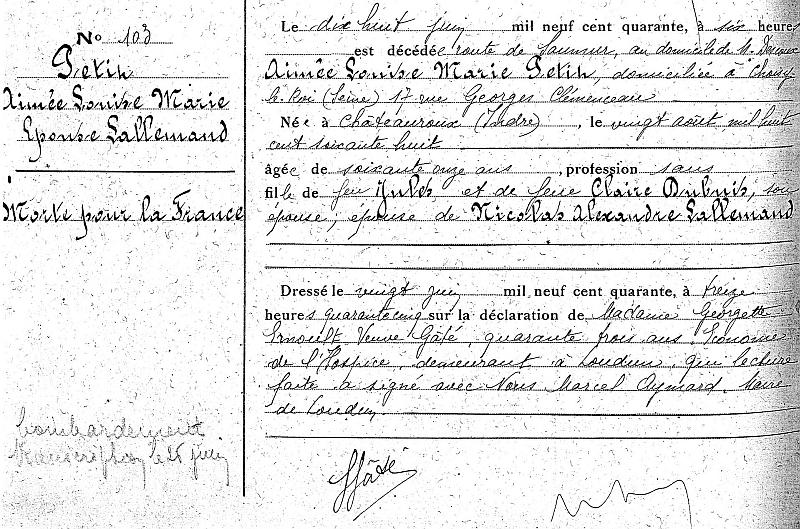 No 103
Petin
Aimée Louise Marie
Epouse Lallemand
Morte pour la France
bombardement
transcription le 26 juin
Le dix huit juin mil neuf cent quarante, à six heures
est décédée route de Saumur, au domicile de M.
Aimée Louise Marie Petin, domiciliée à Choisy
le-Roi (Seine) 17 rue Georges Clémenceau
Née à Chateauroux (Indre), le vingt août mil huit
cent soixante huit
âgée de soixante onze ans, profession sans
fille de feu Jules et de feue Claire Dubuis, son
épouse; épouse de Nicolas Alexandre Lallemand
Dressé le vingt juin mil neuf cent quarante, à treize
heures quarante cinq sur la déclaration de Madame Georgette
Ernoult Veuve Gâté, quarante trois ans, Econome
de l'Hospice, demeurant à Loudun, qui lecture
faite a signé avec Nous Marcel Aymard, Maire
de Loudun
Gâté